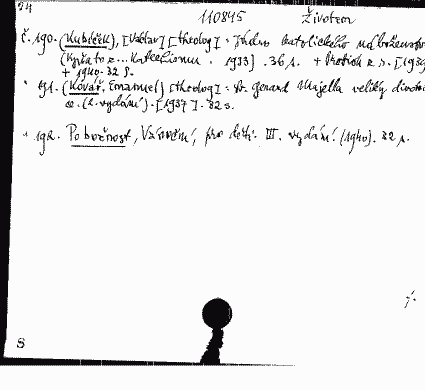 24
110845 Životem
č. 190. (Kubíček), [Václav] [theolog] = Jádro katolického náboženství
(Výňatek z... Katechismu. 1933). 36 s. + [1939
+ 1940. 32 s.
" 191. (Kovář, Emanuel) [theolog] = Sv. Gerard Majella veliký divotv
(2. vydání). [1937]. 32 s.
" 192. Pobožnost, pro děti. III. vydání. (1940). 32 s.
8